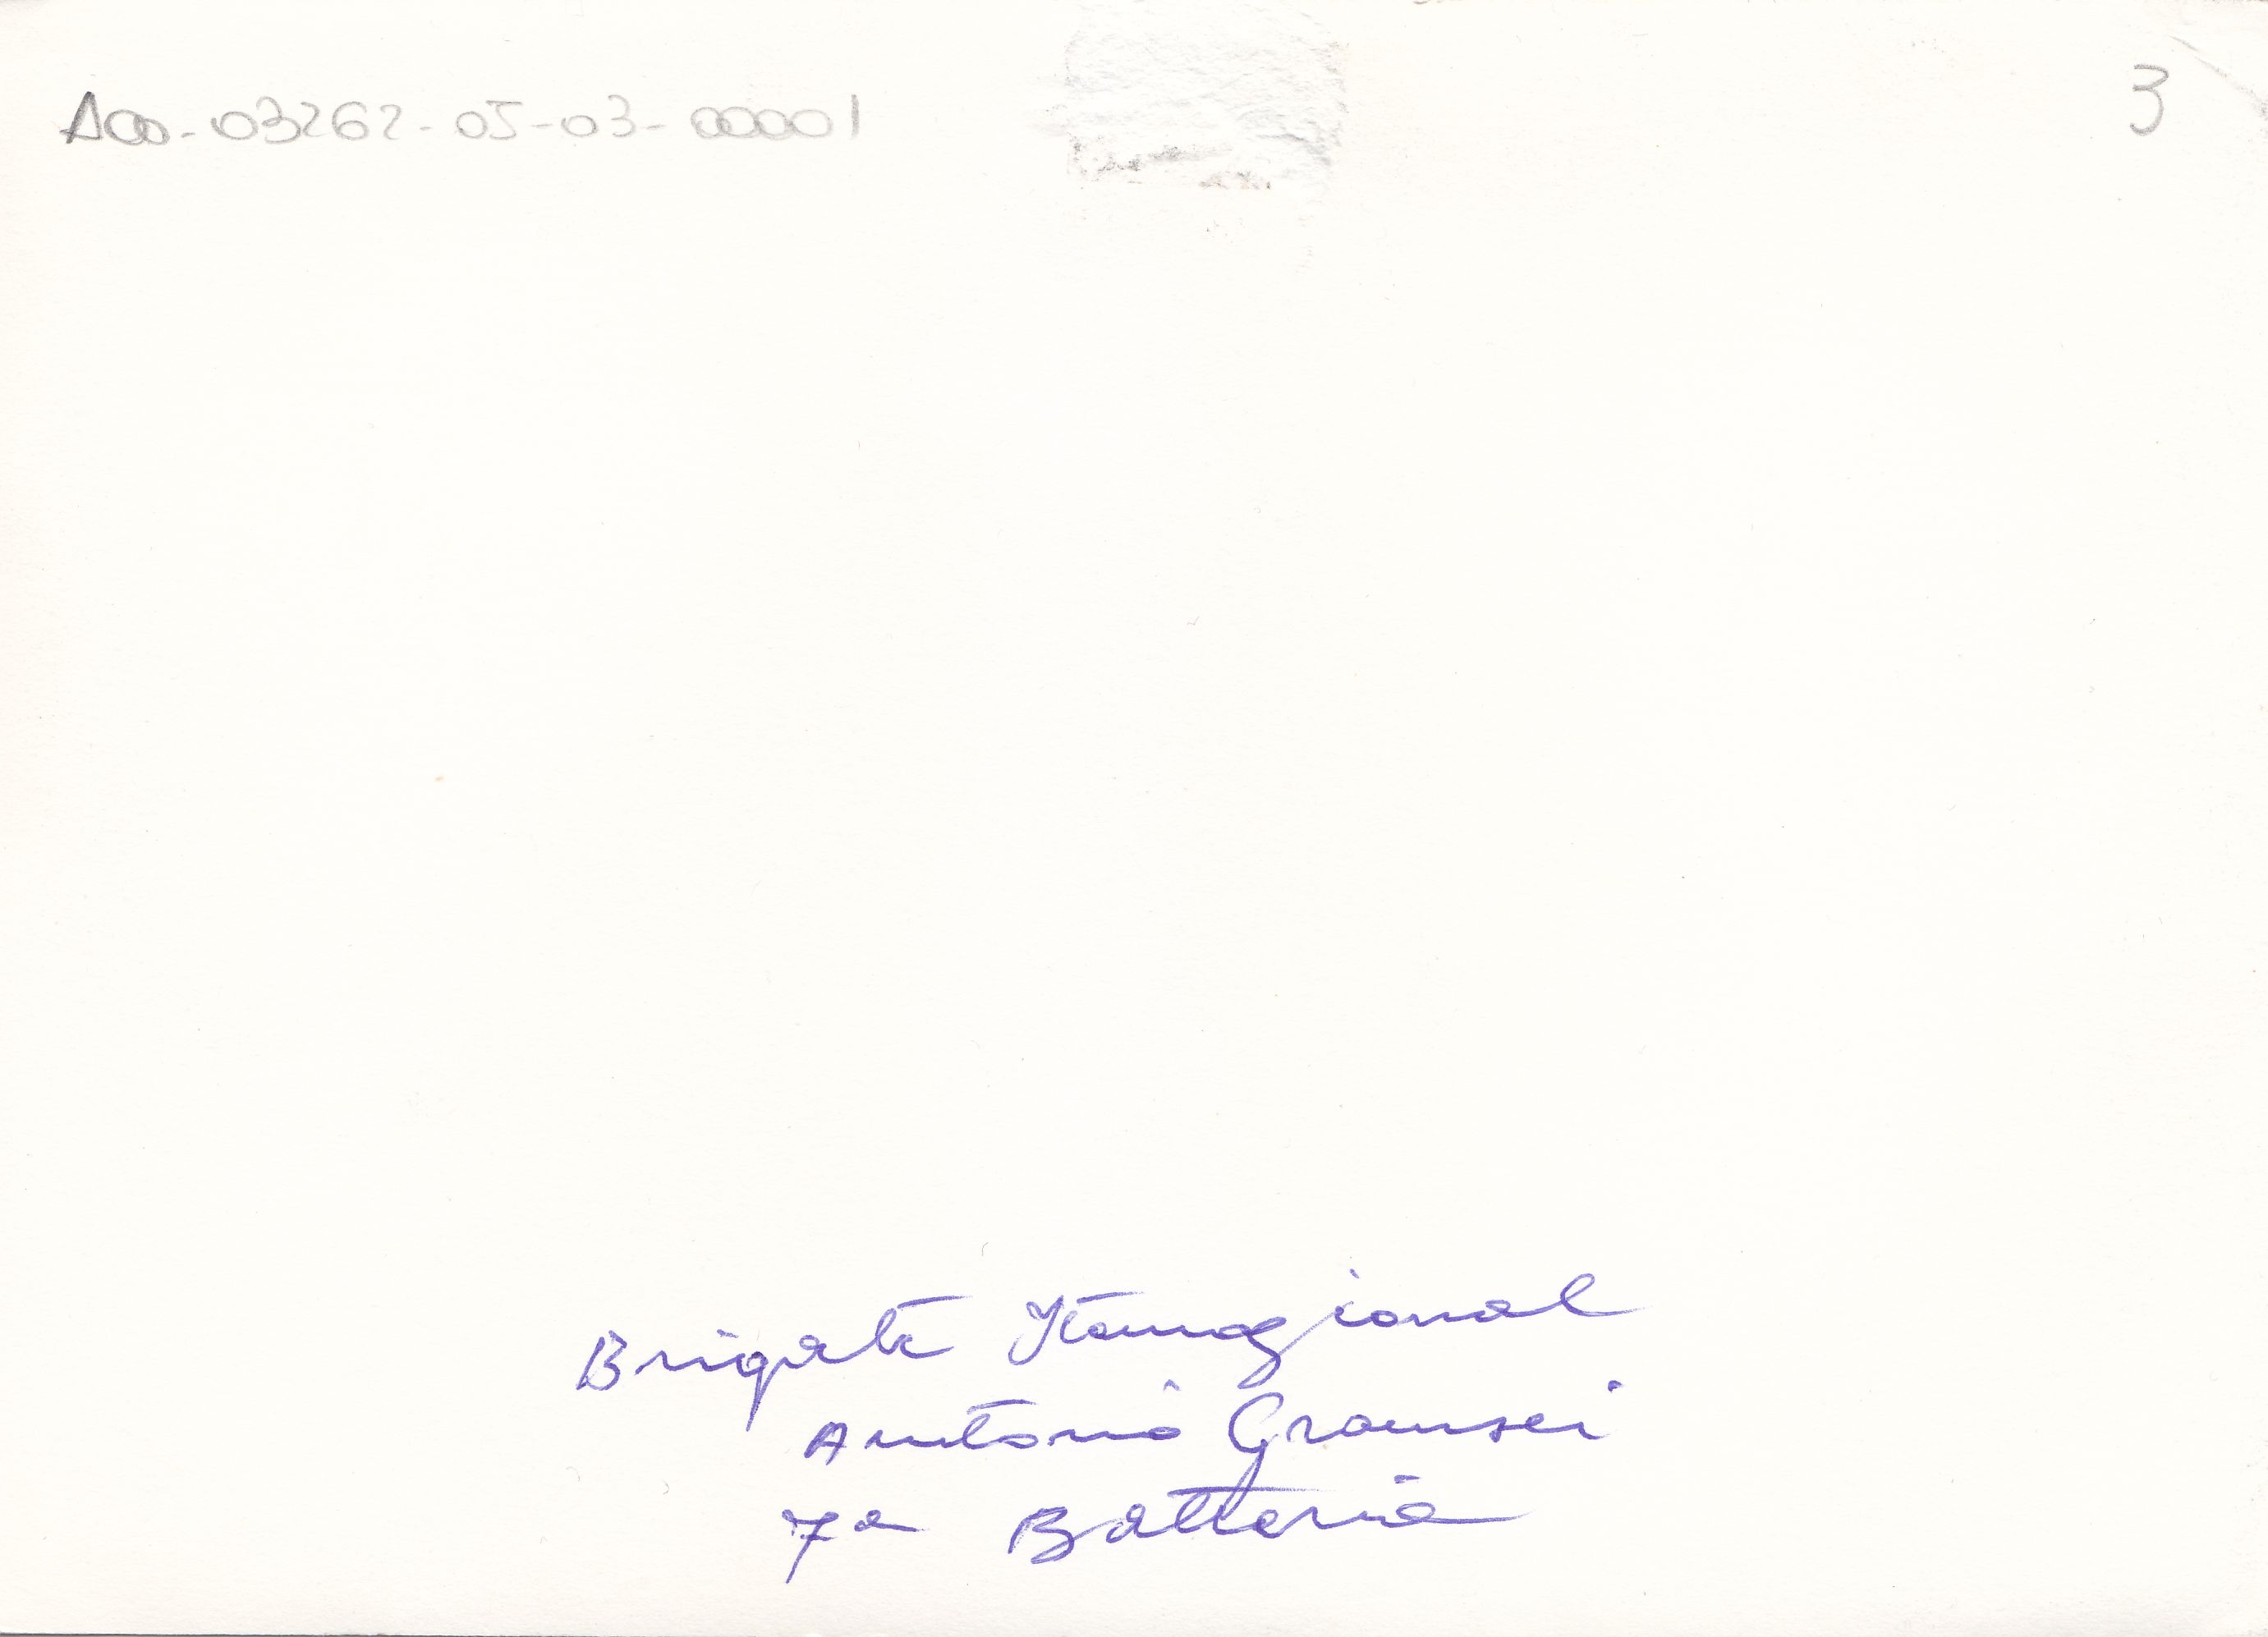 A00-03262-05-03-00001
3
Brigata
Antonio Gramsci
7ª Batteria